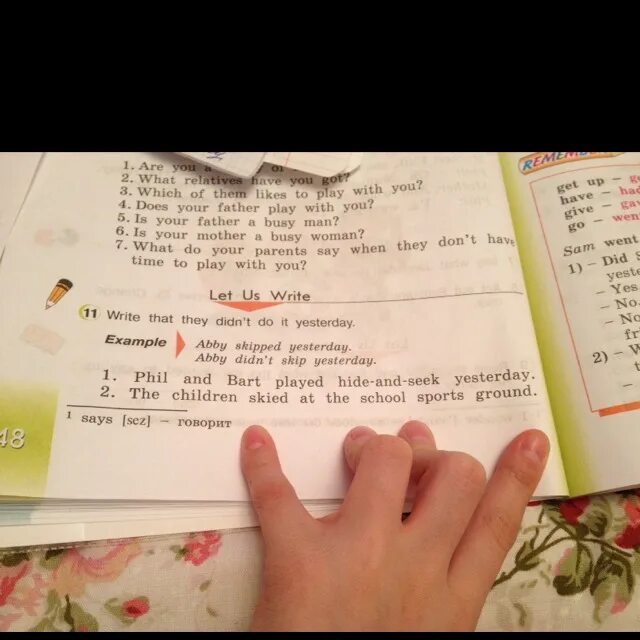 1. Are you a or
2. What relatives have you got?
3. Which of them likes to play with you?
4. Does your father play with you?
5. Is your father a busy man?
6. Is your mother a busy woman?
7. What do your parents say when they don't have
time to play with you?
Let Us Write
11 Write that they didn't do it yesterday.
Example Abby skipped yesterday.
Abby didn't skip yesterday.
1. Phil and Bart played hide-and-seek yesterday.
2. The children skied at the school sports ground.
1 says [sez] – говорит
48
REMEMBER
get up –
have –
give –
go –
Sam went
1) – Did
– Yes
– No.
– No
2) –